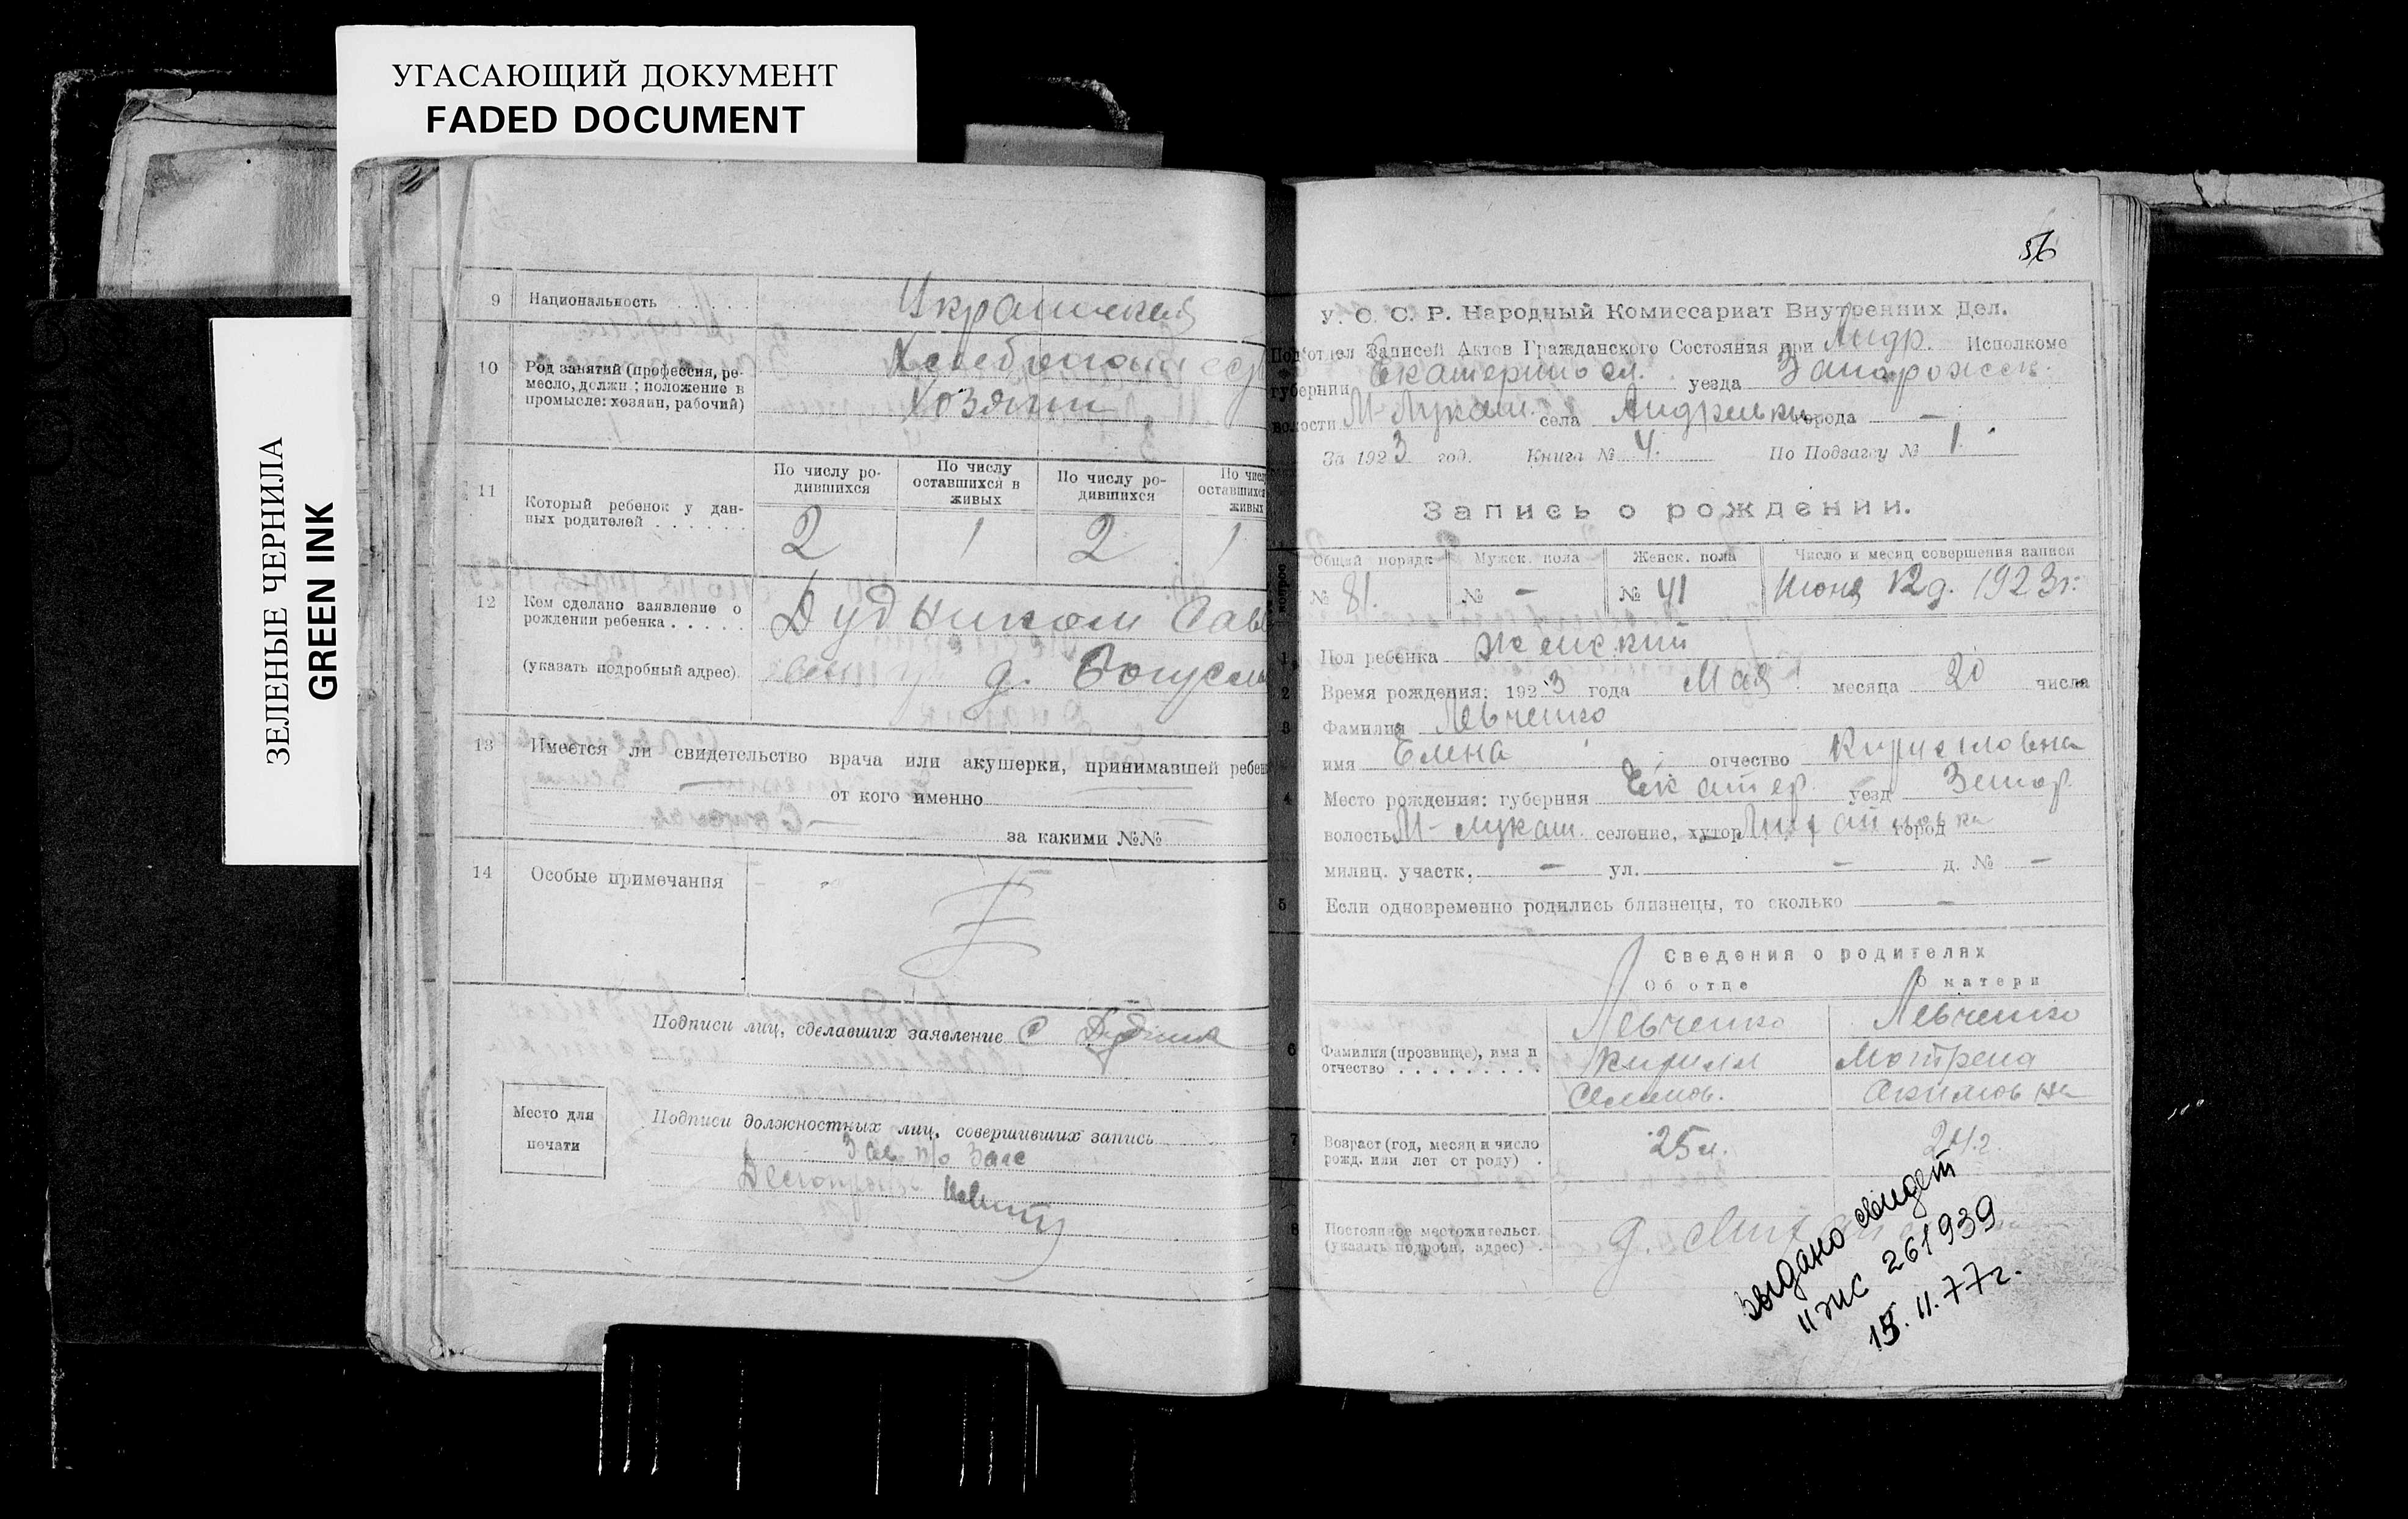 УГАСАЮЩИЙ ДОКУМЕНТ
FADED DOCUMENT
ЗЕЛЕНЫЕ ЧЕРНИЛА
GREEN INK
9 Национальность . . . . . Украинская
10 Род занятий (профессия, ре-
месло, должн.; положение в
промысле: хозяин, рабочий)
Хозяин
11 Который ребенок у дан-
ных родителей . . . . . .
По числу ро-
дившихся
По числу
оставшихся в
живых
По числу ро-
дившихся
По чис
оставшихс
живых
2 1 2 1
12 Кем сделано заявление о
рождении ребенка . . . . .
(указать подробный адрес).
Дудником Савв
д.
13 Имеется ли свидетельство врача или акушерки, принимавшей ребен
от кого именно
за какими №№
14 Особые примечания
Подписи лиц, сделавших заявление С Дудник
Место для
печати
Подписи должностных лиц, совершивших запись
Зав п/о Загс
56
У. С. С. Р. Народный Комиссариат Внутренних Дел.
Подотдел Записей Актов Гражданского Состояния при Андр. Исполкоме
губернии Екатериносл. уезда Запорожск.
волости М-Лукаш. села Андреевки города —
За 1923 год. Книга № 4. По Подзагсу № 1.
Запись о рождении.
Общий порядк Мужск. пола Женск. пола Число и месяц совершения записи
№ 81. № — № 41 Июня 12д. 1923г.
1 Пол ребенка Женский
2 Время рождения: 1923 года Мая месяца 20 числа
3 Фамилия Левченко
имя Елена отчество Кирилловна
4 Место рождения: губерния Екатер. уезд Запор.
волость М-Лукаш. селение, хутор Михайловка город
милиц. участк. — ул. — д. № —
5 Если одновременно родились близнецы, то сколько —
Сведения о родителях
Об отце О матери
6 Фамилия (прозвище), имя и
отчество . . . . . . . . .
Левченко Левченко
Кирилл Мотрена
Семенов. Акимовна
7 Возраст (год, месяц и число
рожд. или лет от роду) .
25 л. 24 г.
8 Постоянное местожительст.
(указать подробн. адрес) .
д.
Выдано свидет
II ЭЖС 261939
15.11.77г.